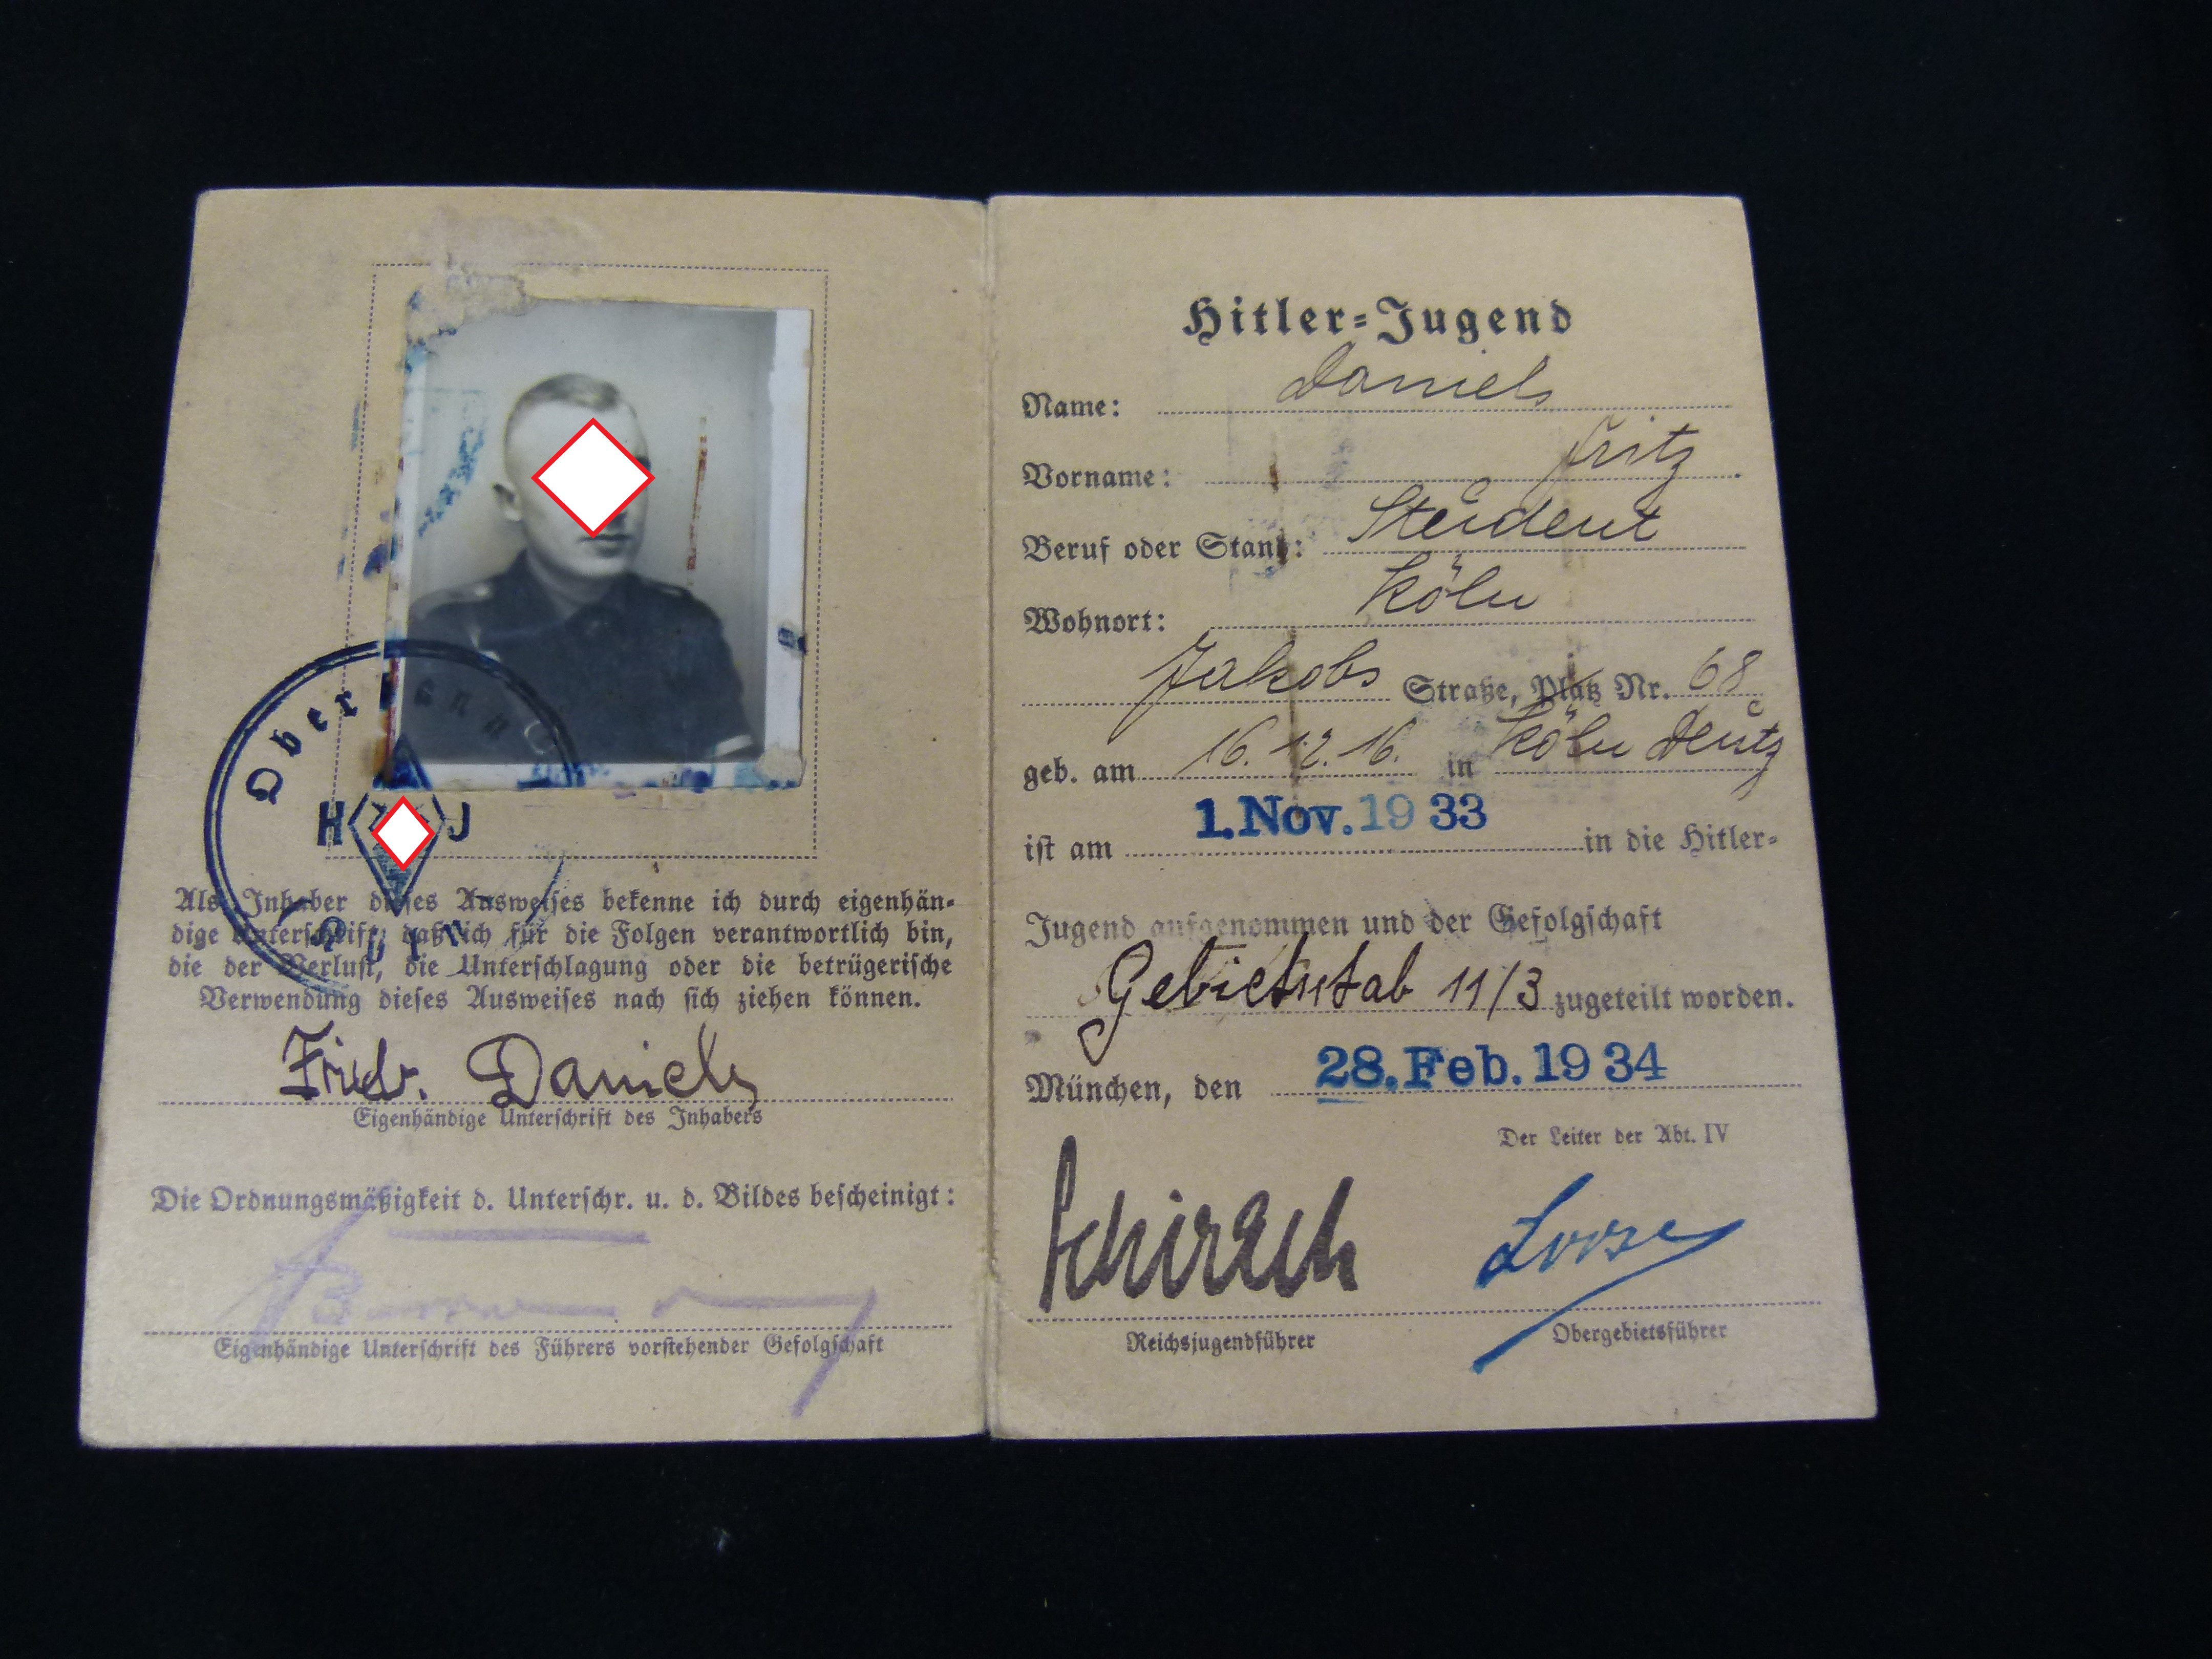 Oberbann
H J
Köln
Als Inhaber dieses Ausweises bekenne ich durch eigenhän-
dige Unterschrift, daß ich für die Folgen verantwortlich bin,
die der Verlust, die Unterschlagung oder die betrügerische
Verwendung dieses Ausweises nach sich ziehen können.
Friedr. Daniels
Eigenhändige Unterschrift des Inhabers
Die Ordnungsmäßigkeit d. Unterschr. u. d. Bildes bescheinigt:
Eigenhändige Unterschrift des Führers vorstehender Gefolgschaft
Hitler-Jugend
Name: Daniels
Vorname: Fritz
Beruf oder Stand: Student
Wohnort: Köln
Jakobs Straße, Platz Nr. 68
geb. am 16. 12. 16. in Köln Deutz
ist am 1. Nov. 1933 in die Hitler-
Jugend aufgenommen und der Gefolgschaft
Gebietsstab 11/3 zugeteilt worden.
München, den 28. Feb. 1934
Der Leiter der Abt. IV
Schirach
Reichsjugendführer Obergebietsführer